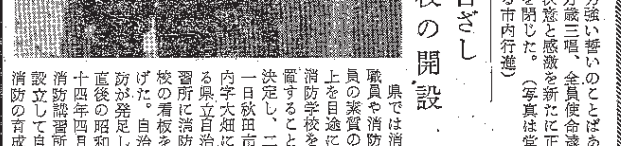 力強い誓いのことばあ
万歳三唱、全員使命遂
決意と感激を新たに正
を閉じた。（写真は堂
る市内行進）
ざし
校の開設
県では消
職員や消防
員の素質の
上を目途に
消防学校を
置すること
決定し、二
一日秋田市
内字大畑に
る県立自治
習所に消防
校の看板を
げた。自治
防が発足し
直後の昭和
十四年四月
消防講習所
設立して自
消防の育成